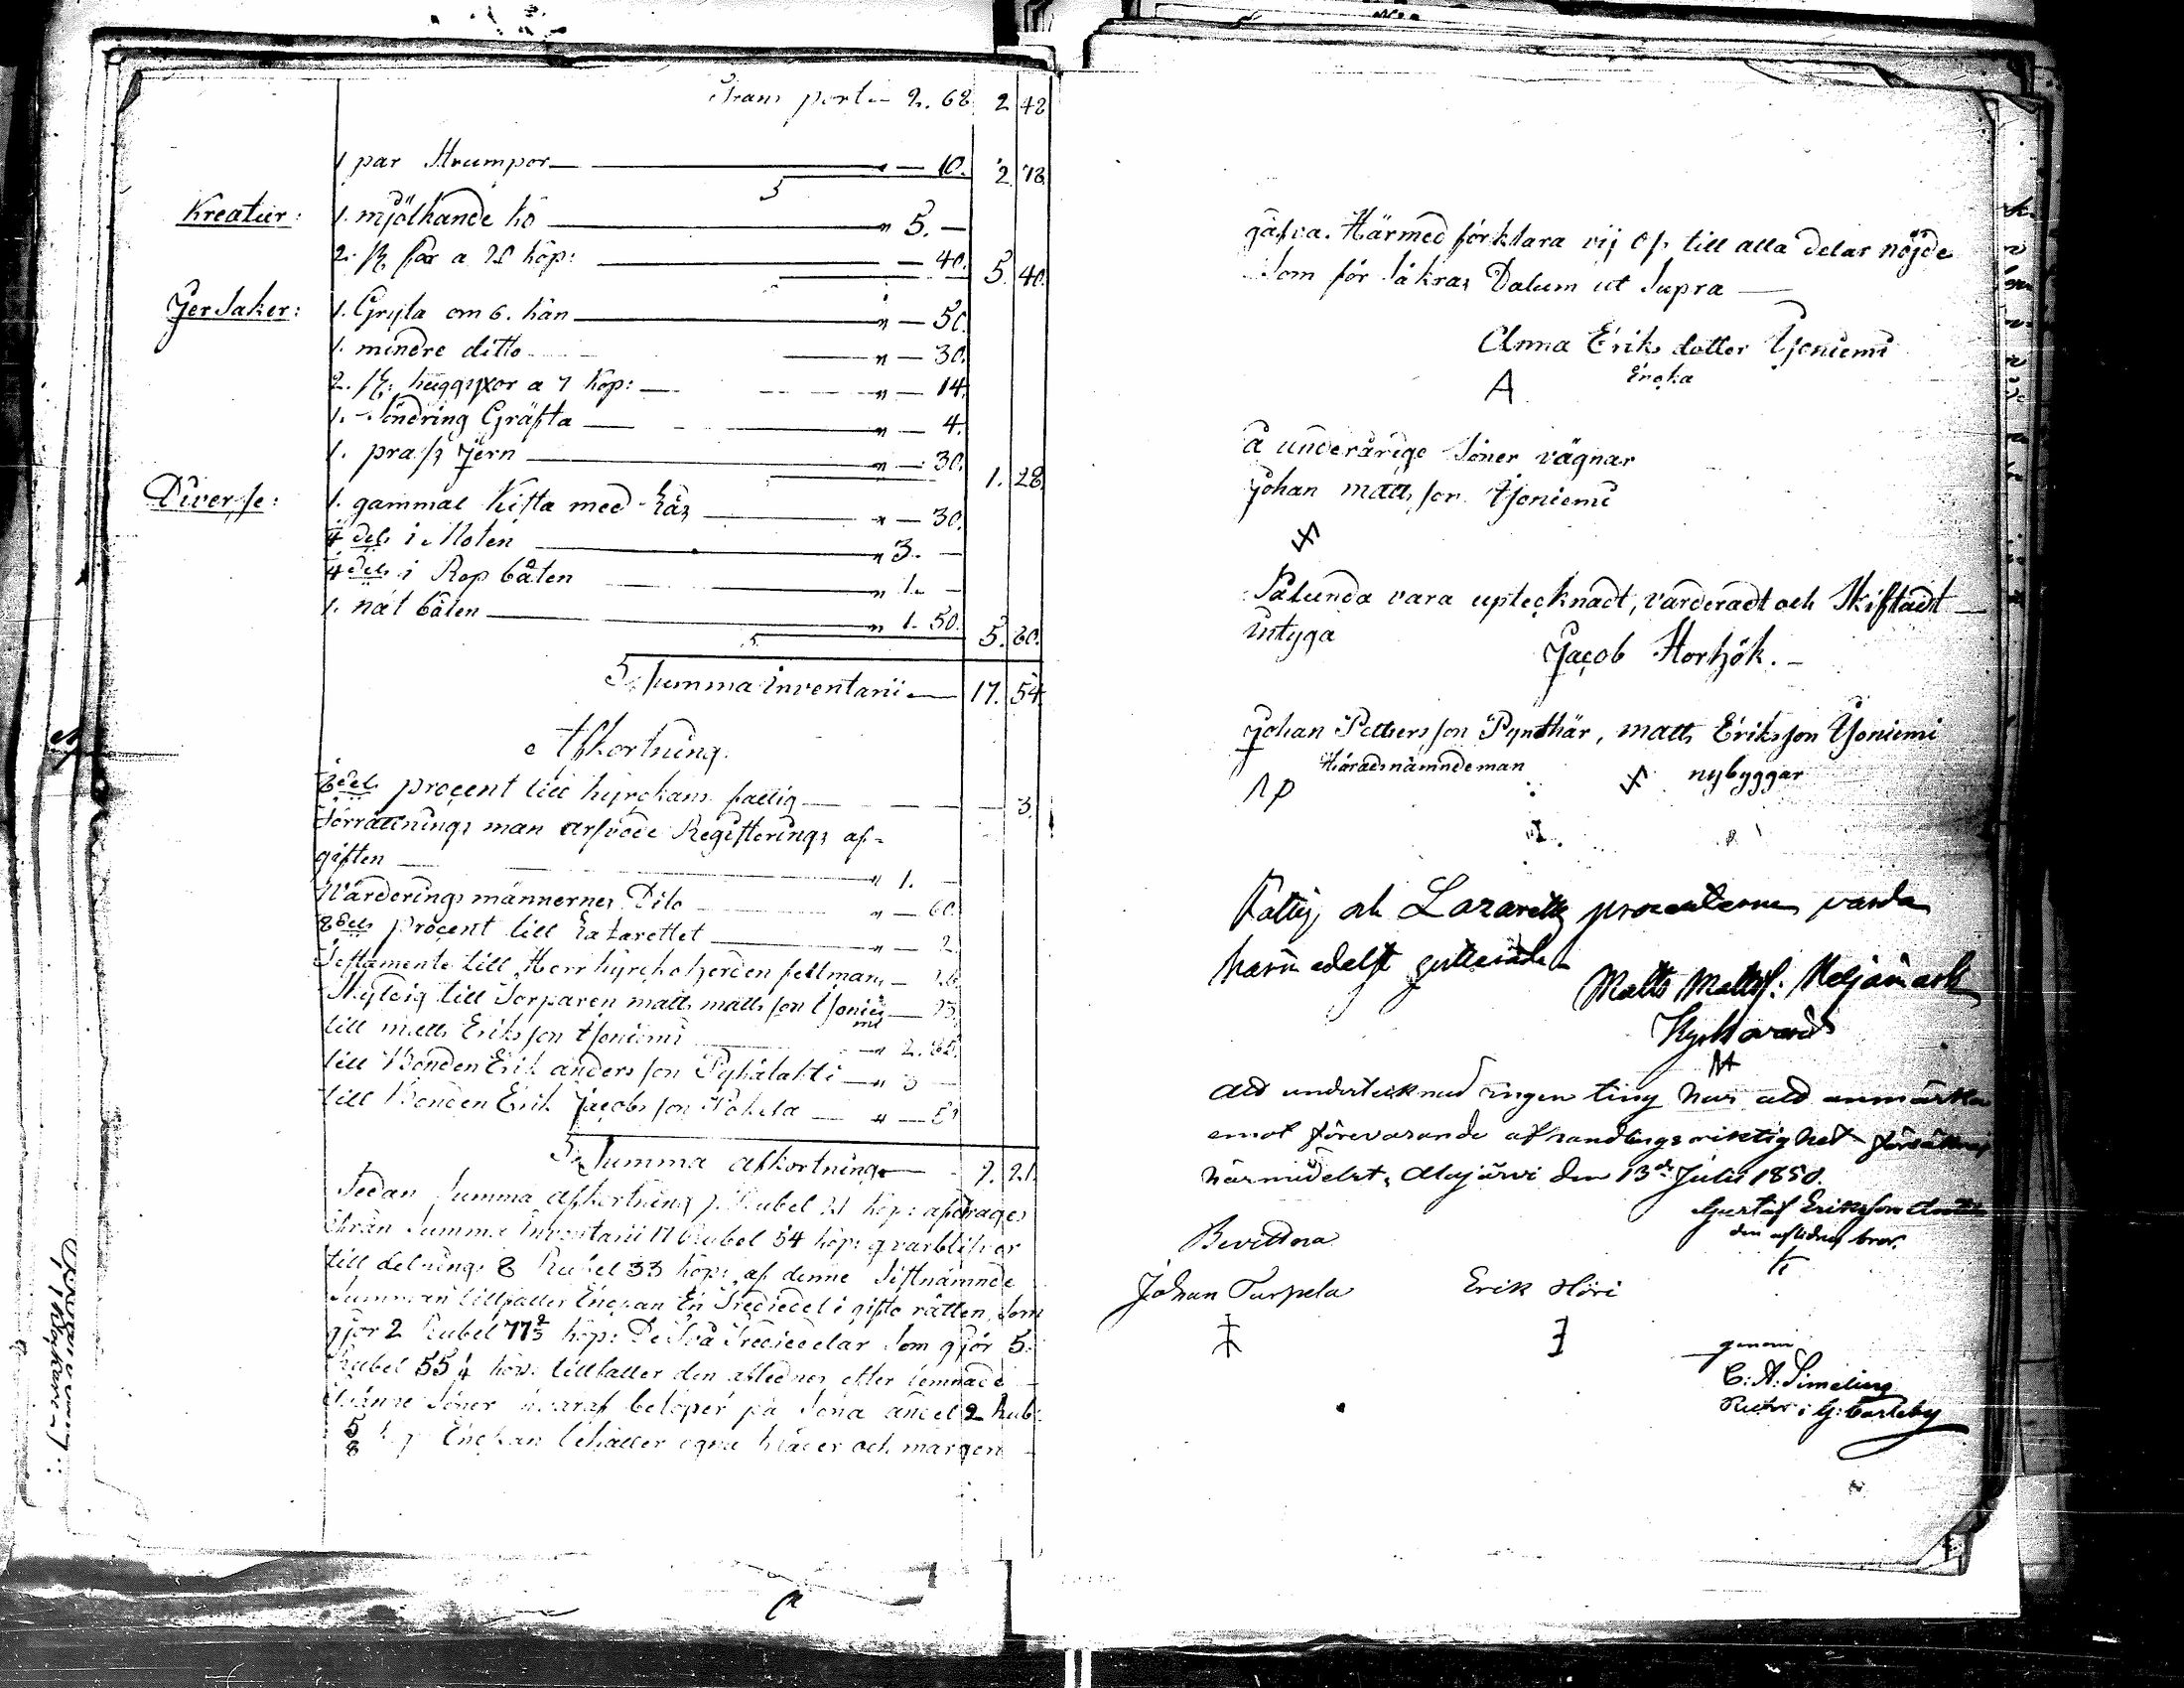 Transport — 2. 68. 2 48
1 par Strumpor — — 10. 2. 78.
Kreatur: 1. mjölkande ko — " 5. —
2. st. får a 20 kop: — — 40. 5. 40.
Jersaker: 1. Gryta om 6. kan — " — 50.
1. mindre ditto — " — 30.
2. st. huggyxor a 7 kop: — " — 14.
1. Söndrig Gräfta — " — 4.
1. prass Jern — " — 30. 1. 28.
Diverse: 1. gammal Kista med Lås — " — 30.
4 dels i Noten — " 3. —
4 dels i Rop båten — " 1. —
1. nät båten — " 1. 50. 5. 80.
Summa inventarii — 17. 54.
Afkortning.
8 dels procent till kyrckans fattig — 3.
Förrättnings man arfvode Registerings af-
giften — " 1. —
Värderings männernes Dito — " — 60.
8 dels procent till Latarettet — " — 2
Testamente till Herr kyrckoherden fellman —
Skyldig till Torparen matts mattsson Ujoniemi —
till matts Eriksson Ujoniemi — " 2.
till Bonden Erik andersson Pyhälahti — " 3 —
till Bonden Erik Jacobsson —
Summa afkortning — 9. 21.
Sedan Summa afkortning 9. Rubel 21 kop: afdrages
ifrån Summa Inventarii 17 Rubel 54 kop: qvarblifver
till delning 8 Rubel 33 kop: af denne Sistnämnde
Summan tillfaller Enckan En Trediedel i gifto rätten, Som
gjör 2 Rubel 77 2/3 kop: De Två Trediedelar Som gjör 5.
Rubel 55 1/4 kop: tillfaller den aflednes efter lemnade
Söner hvaraf belöper på Sona andel 2 Rub:
5/8 kop Enckan behåller egna kläder och margon
gåfva. Härmed förklara vij Oss till alla delar nöjde
Som försäkras Datum ut Supra —
Anna Eriks dotter Ujoniemi
Encka
A
å underårige Söner vägnar
Johan mattsson Ujoniemi
Sålunda vara uptecknadt, värderadt och Skiftadt —
intyga
Jacob Storhök. —
Johan Pettersson Pynthär, matts Eriksson Ujoniemi
Häradsnämndeman nybyggar
Fattig och Lazaretts procenterne varda
härmedelst qvitterade
Matts Matts: Heljämark
Kyrkovärd
Att undertecknad ingen ting har att anmärka
emot förevarande afhandlings riktighet försäkras
härmedelst, Alajärvi den 13de Julii 1850.
Gustaf Eriksson
den aflidnes bror.
Bevittna
Johan Turpela Erik Höri
genom
C: A: Simelius
i G: Carleby